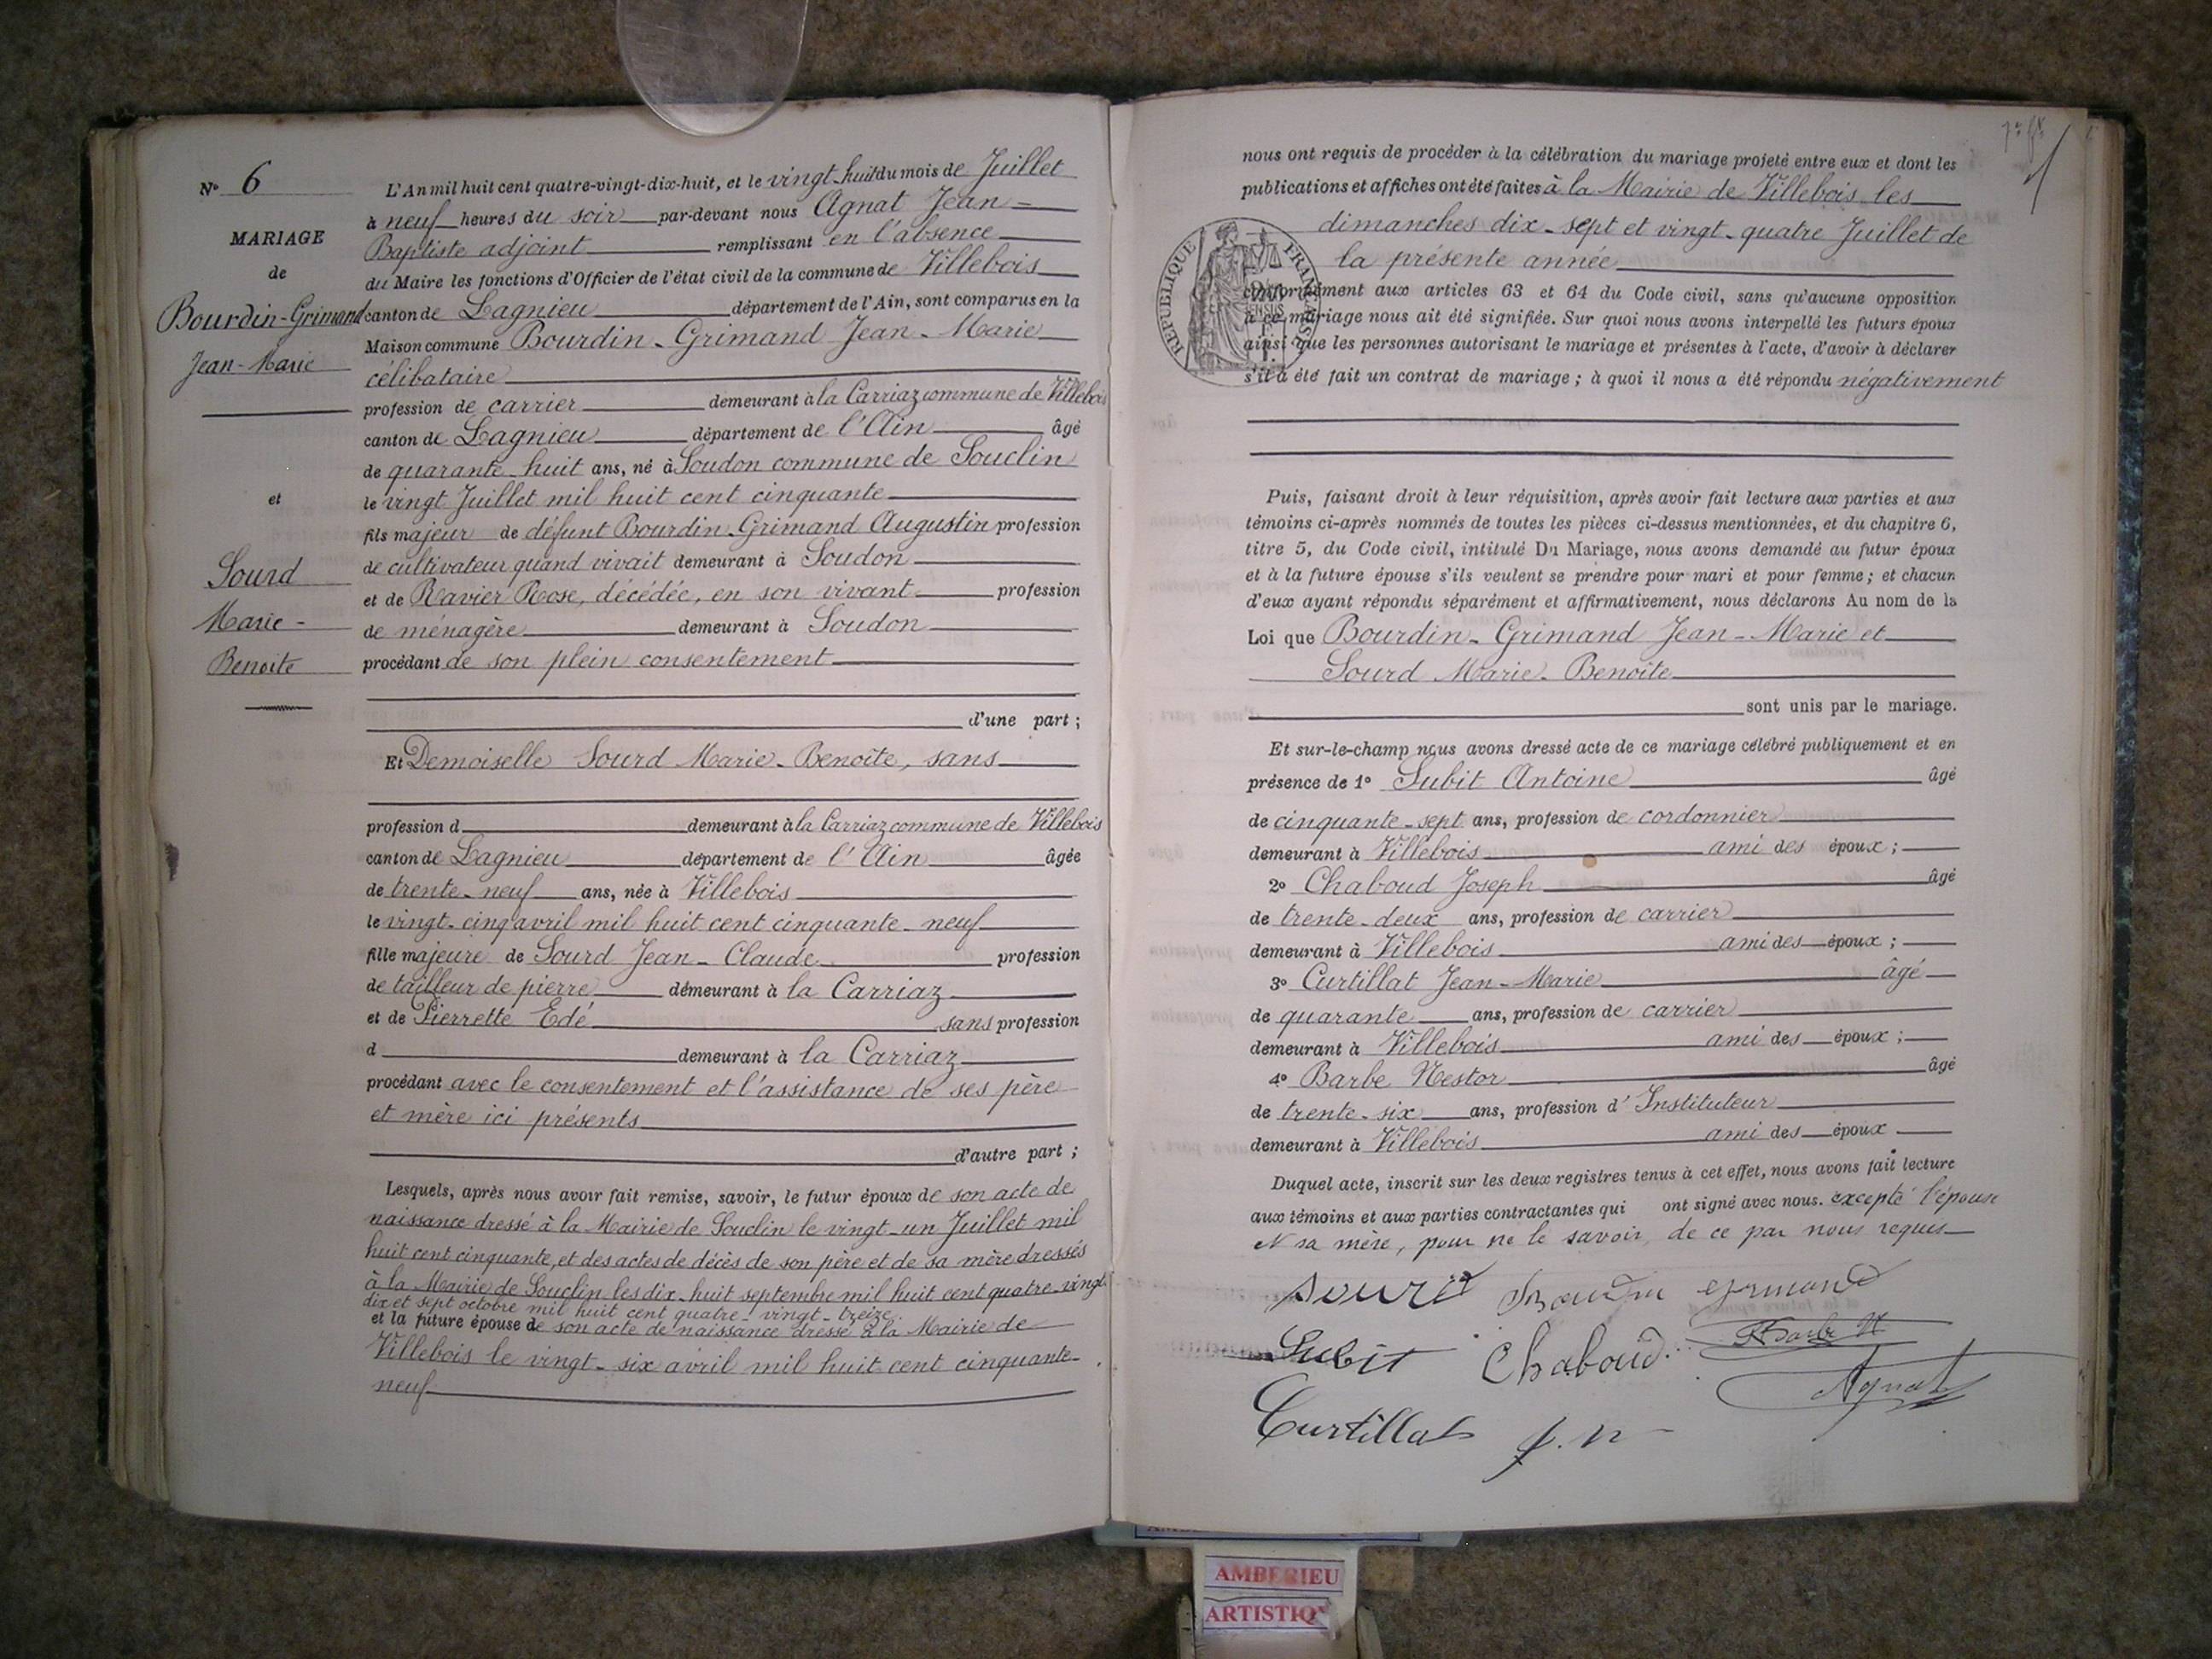 N° 6
MARIAGE
de
Bourdin-Grimand
Jean-Marie
et
Sourd
Marie-
Benoite
L'An mil huit cent quatre-vingt-dix-huit, et le vingt-huit du mois de Juillet
à neuf heures du soir par-devant nous Agnat Jean-
Baptiste adjoint remplissant en l'absence
du Maire les fonctions d'Officier de l'état civil de la commune de Villebois
canton de Lagnieu département de l'Ain, sont comparus en la
Maison commune Bourdin-Grimand Jean-Marie
célibataire
profession de carrier demeurant à la Carriaz commune de Villebois
canton de Lagnieu département de l'Ain âgé
de quarante huit ans, né à Soudon commune de Souclin
le vingt Juillet mil huit cent cinquante
fils majeur de défunt Bourdin-Grimand Augustin profession
de cultivateur quand vivait demeurant à Soudon
et de Ravier Rose, décédée, en son vivant profession
de ménagère demeurant à Soudon
procédant de son plein consentement
d'une part ;
Et Demoiselle Sourd Marie-Benoîte, sans
profession d demeurant à la Carriaz commune de Villebois
canton de Lagnieu département de l'Ain âgée
de trente-neuf ans, née à Villebois
le vingt-cinq avril mil huit cent cinquante-neuf
fille majeure de Sourd Jean-Claude profession
de tailleur de pierre demeurant à la Carriaz
et de Pierrette Edé sans profession
d demeurant à la Carriaz
procédant avec le consentement et l'assistance de ses père
et mère ici présents
d'autre part ;
Lesquels, après nous avoir fait remise, savoir, le futur époux de son acte de
naissance dressé à la Mairie de Souclin le vingt-un Juillet mil
huit cent cinquante, et des actes de décès de son père et de sa mère dressés
à la Mairie de Souclin les dix-huit septembre mil huit cent quatre-vingt-
dix et sept octobre mil huit cent quatre-vingt-treize.
et la future épouse de son acte de naissance dressé à la Mairie de
Villebois le vingt-six avril mil huit cent cinquante-
neuf
nous ont requis de procéder à la célébration du mariage projeté entre eux et dont les
publications et affiches ont été faites à la Mairie de Villebois les
dimanches dix-sept et vingt-quatre Juillet de
la présente année
REPUBLIQUE FRANÇAISE
conformément aux articles 63 et 64 du Code civil, sans qu'aucune opposition
à ce mariage nous ait été signifiée. Sur quoi nous avons interpellé les futurs époux
ainsi que les personnes autorisant le mariage et présentes à l'acte, d'avoir à déclarer
s'il a été fait un contrat de mariage ; à quoi il nous a été répondu négativement
Puis, faisant droit à leur réquisition, après avoir fait lecture aux parties et aux
témoins ci-après nommés de toutes les pièces ci-dessus mentionnées, et du chapitre 6,
titre 5, du Code civil, intitulé Du Mariage, nous avons demandé au futur époux
et à la future épouse s'ils veulent se prendre pour mari et pour femme ; et chacun
d'eux ayant répondu séparément et affirmativement, nous déclarons Au nom de la
Loi que Bourdin-Grimand Jean-Marie et
Sourd Marie-Benoîte
sont unis par le mariage.
Et sur-le-champ nous avons dressé acte de ce mariage célébré publiquement et en
présence de 1° Subit Antoine âgé
de cinquante-sept ans, profession de cordonnier
demeurant à Villebois ami des époux ;
2° Chaboud Joseph âgé
de trente-deux ans, profession de carrier
demeurant à Villebois ami des époux ;
3° Curtillat Jean-Marie âgé
de quarante ans, profession de carrier
demeurant à Villebois ami des époux ;
4° Barbe Nestor âgé
de trente-six ans, profession d'Instituteur
demeurant à Villebois ami des époux
Duquel acte, inscrit sur les deux registres tenus à cet effet, nous avons fait lecture
aux témoins et aux parties contractantes qui ont signé avec nous. excepté l'épouse
et sa mère, pour ne le savoir, de ce par nous requis
Sourd Bourdin grimand
Subit Chaboud Barbe N
Agnat
Curtillat
AMBERIEU
ARTISTIQ